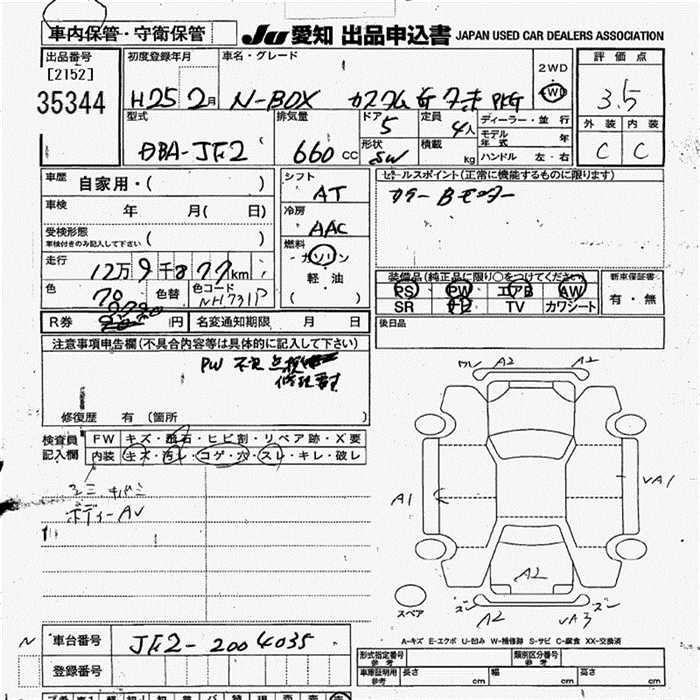 車内保管・守衛保管
JU 愛知 出品申込書 JAPAN USED CAR DEALERS ASSOCIATION
出品番号 初度登録年月 車名・グレード 2WD 評価点
[2152]
35344 H25 2月 N-BOX カスタム G ターボ PKG 4WD 3.5
型式 排気量 ドア 定員 ディーラー・並行 外装 内装
DBA-JF2 660cc 5 4人 モデル年式 年 C C
形状 SW 積載 kg ハンドル 左・右
車歴 自家用・( ) シフト AT セールスポイント(正常に機能するものに限ります)
車検 年 月( 日) 冷房 AAC カラーBモニター
受検形態 車検付きのみ記入して下さい ( )
走行 12万9千877km 燃料 ガソリン 軽油 ( )
装備品(純正品に限り○をつけてください) 新車保証書
色 色替 色コード NH731P PS PW エアB AW 有・無
SR ナビ TV カワシート
R券 円 名変通知期限 月 日 後日品
注意事項申告欄(不具合内容等は具体的に記入して下さい)
PW 不良
修復歴 有 (箇所
検査員記入欄 FW キズ・飛石・ヒビ割・リペア跡・X要
内装 キズ・汚レ・コゲ・穴・スレ・キレ・破レ
ボディーAV
A2 A2
A1 VA1
A2
スペア
A2 VA3
A-キズ E-エクボ U-凹み W-補修跡 S-サビ C-腐食 XX-交換済
N 車台番号 JF2-2004035
登録番号
形式指定番号 参考 類別区分番号 参考
車庫証明用 参考 長さ cm 幅 cm 高さ cm